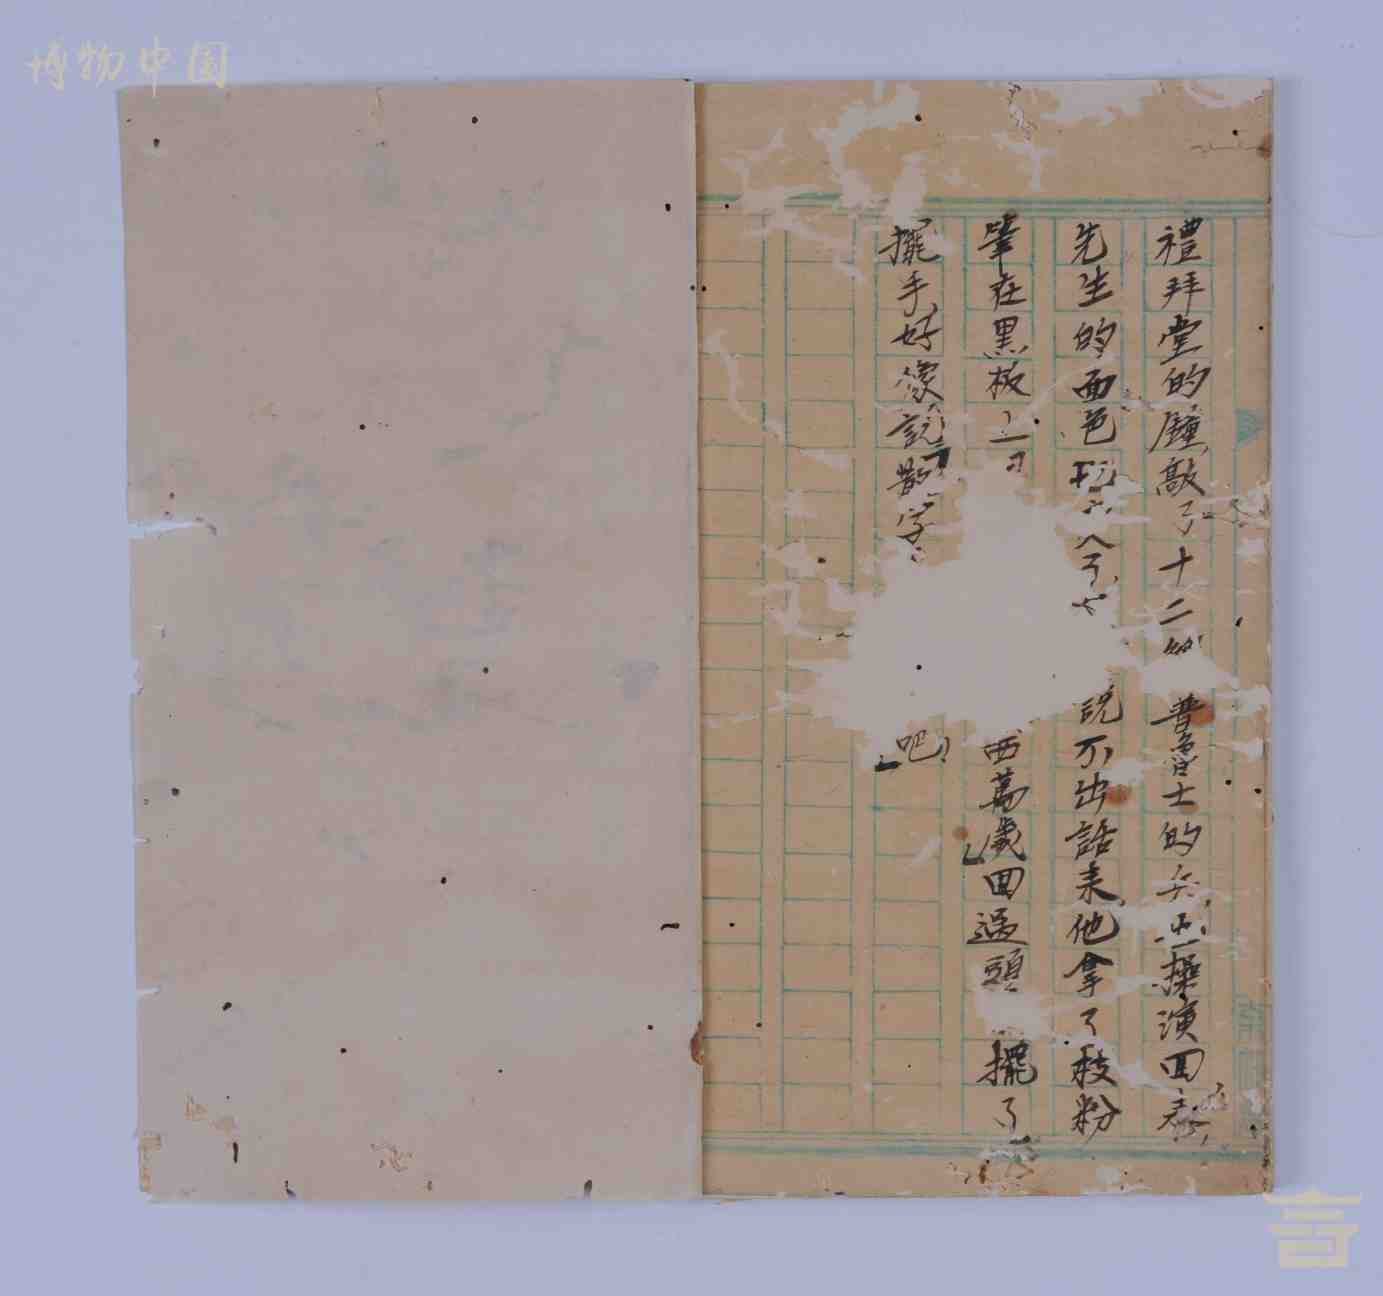 博物中国
禮拜堂的鐘敲了十二 普魯士的兵 操演回來
先生的面色 說不出話來他拿了枝粉
筆在黑板上 西萬歲回過頭 擺了
擺手好像說散學 吧